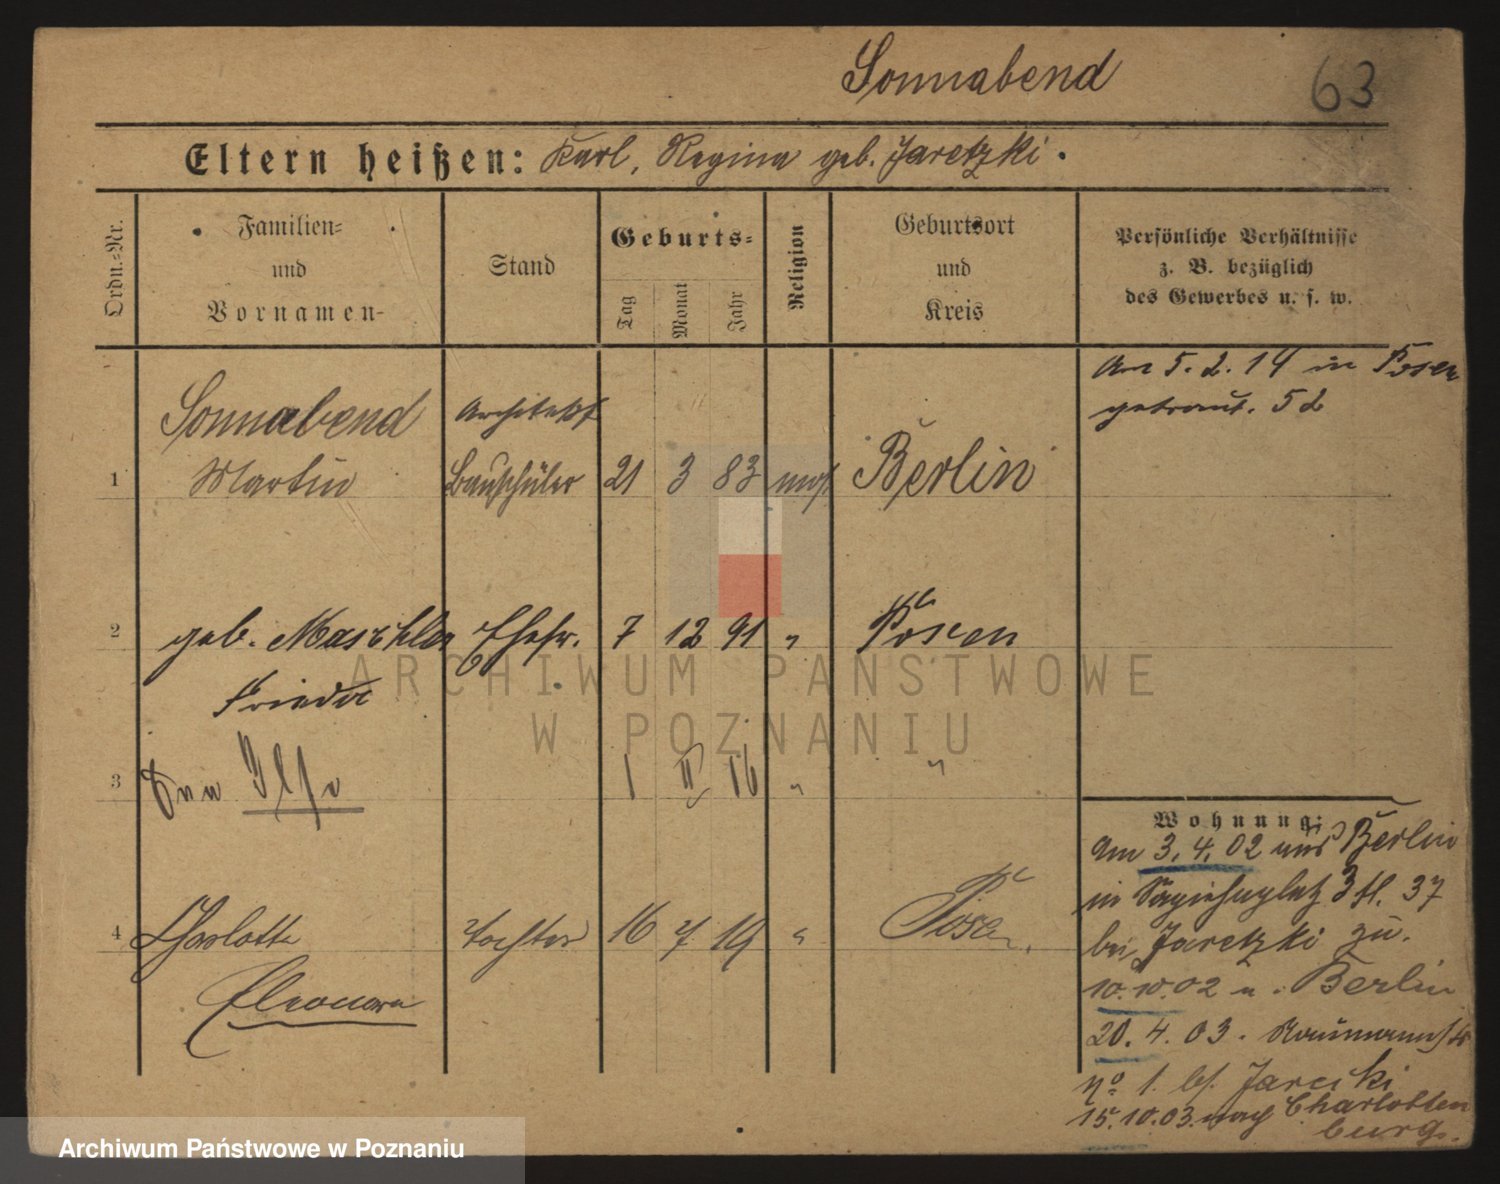 Sonnabend
63
Eltern heißen: Karl, Regina geb. Jaretzki.
Ordn.-Nr.
Familien-
und
Vornamen-
Stand
Geburts-
Tag
Monat
Jahr
Religion
Geburtsort
und
Kreis
Persönliche Verhältnisse
z. B. bezüglich
des Gewerbes u. s. w.
Am 5. 2. 14 in Posen
getraut. 52
Sonnabend
Architekt
1 Martin Bauschüler 21 3 83 mos. Berlin
2 geb. Maschler Ehefr. 7 12 91 " Posen
Frieda
3 Ilse 1 II 16 " "
4 Charlotte Tochter 16 7 19 " Posen.
Eleonora
Wohnung:
Am 3. 4. 02 aus Berlin
in Sapiehaplatz 3 37
bei Jaretzki zu.
10. 10. 02 n. Berlin
20. 4. 03. Naumannstr
No 1. bf. Jarecki
15. 10. 03. nach Charlotten
burg.
ARCHIWUM PAŃSTWOWE
W POZNANIU
Archiwum Państwowe w Poznaniu